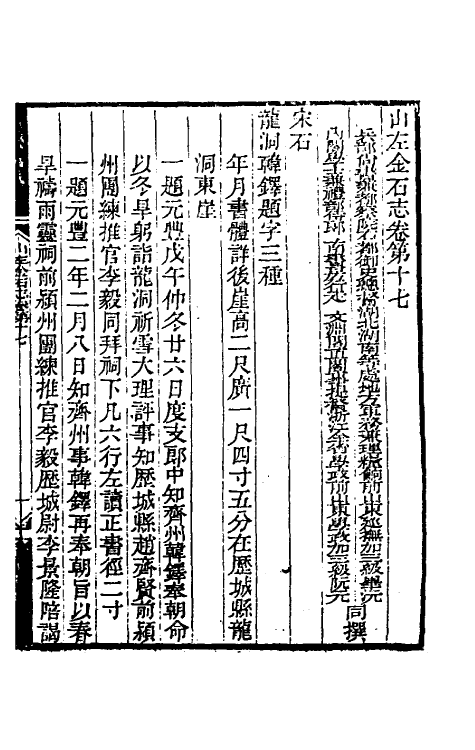 山左金石志卷第十七
兵部尚書兼都察院右都御史總督湖北湖南等處地方軍務兼理糧餉前山東巡撫加三級畢沅
內閣學士兼禮部侍郎南書房行走文淵閣直閣事提督浙江全省學政前山東學政加三級阮元
同撰
宋石
龍洞韓鐸題字三種
年月書體詳後崖高二尺廣一尺四寸五分在歷城縣龍
洞東崖
一題元豐戊午仲冬廿六日度支郎中知齊州韓鐸奉朝命
以冬旱躬詣龍洞祈雪大理評事知歷城縣趙齊賢前潁
州團練推官李毅同拜祠下凡六行左讀正書徑二寸
一題元豐二年二月八日知齊州事韓鐸再奉朝旨以春
旱禱雨靈祠前潁州團練推官李毅歷城尉李景隆陪謁